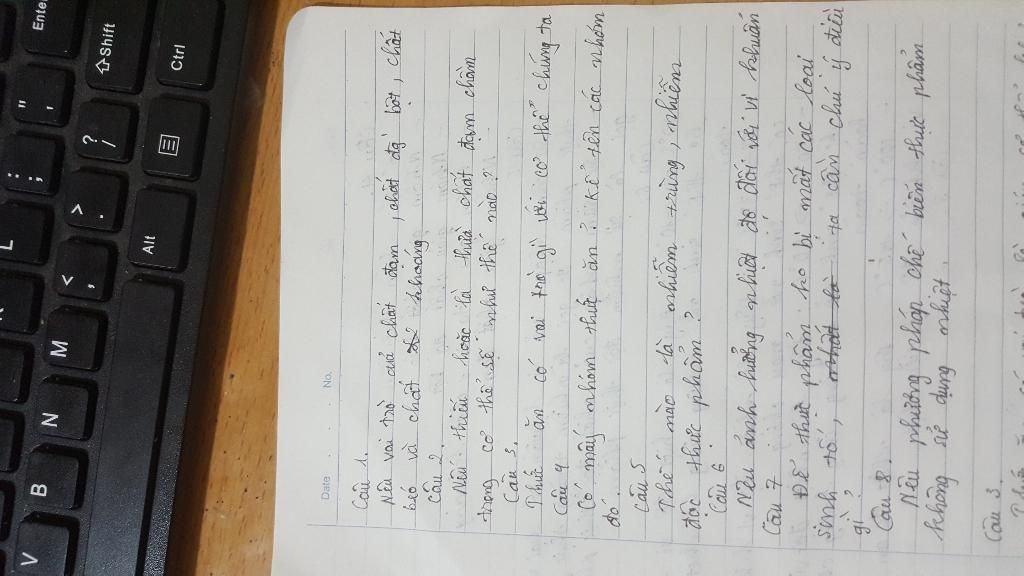 Date . . No.
Câu 1.
Nêu vai trò của chất đạm, chất đg bột, chất
béo và chất khoáng
Câu 2.
Nếu thiếu hoặc là thừa chất đạm chậm
trong cơ thể sẽ như thế nào?
Câu 3.
Thức ăn có vai trò gì với cơ thể chúng ta
Câu 4
Có mấy nhóm thức ăn? Kể tên các nhóm
đó
Câu 5
Thế nào là nhiễm trùng, nhiễm
độc thực phẩm?
Câu 6
Nêu ảnh hưởng nhiệt độ đối với vi khuẩn
Câu 7
Để thực phẩm ko bị mất các loại
sinh tố, ta cần chú ý điều
gì?
Câu 8.
Nêu phương pháp chế biến thực phẩm
không sử dụng nhiệt.
Câu 3.
Enter
"
'
:
;
L
Shift
?
/
>
.
<
,
M
N
B
V
Ctrl
Alt